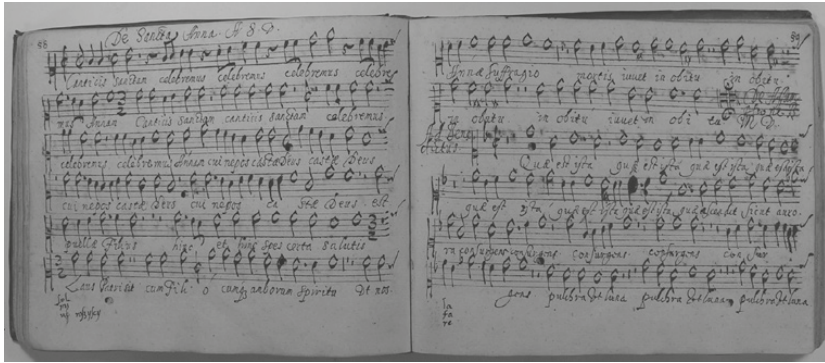 88
De Sancta Anna. A 8 V.
Canticis Sanctam celebremus celebremus celebremus celebre
mus Annam Canticis Sanctam canticis Sanctam celebremus
celebremus, celebremus Annam cui nepos castæ Deus castæ Deus
cui nepos castæ Deus cui nepos ca stæ Deus est
puellæ Filius hinc et hinc spes certa Salutis
Laus patri sit cum Fili o cunq; amborum Spiritu Et nos.
89
Annæ Suffragio mortis iuvet in obitu in obitu
in obitu in obitu iuvet in obi tu
Quæ est ista quæ est ista quæ est ista quæ est ista
quæ est ista quæ est ista quæ est ista quæ ascendit Sicut auro.
ra consurgens consurgens consurgens consurgens con Sur
gens pulchra Et luna pulchra Et luna pulchra Et luna